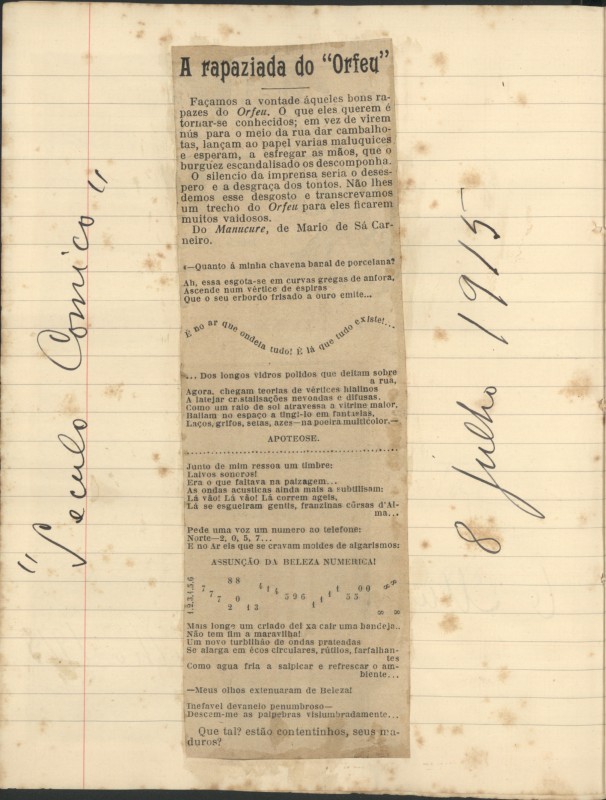 "Seculo Comico"
8 julho 1915
A rapaziada do "Orfeu"
Façamos a vontade áqueles bons ra-
pazes do Orfeu. O que eles querem é
tornar-se conhecidos; em vez de virem
nús para o meio da rua dar cambalho-
tas, lançam ao papel varias maluquices
e esperam, a esfregar as mãos, que o
burguez escandalisado os descomponha.
O silencio da imprensa seria o deses-
pero e a desgraça dos tontos. Não lhes
demos esse desgosto e transcrevamos
um trecho do Orfeu para eles ficarem
muitos vaidosos.
Do Manucure, de Mario de Sá Car-
neiro.
«—Quanto á minha chavena banal de porcelana?
Ah, essa esgota-se em curvas gregas de anfora,
Ascende num vértice de espiras
Que o seu erbordo frisado a ouro emite...
É no ar que ondeia tudo! É lá que tudo existe!...
... Dos longos vidros polidos que deitam sobre
a rua,
Agora, chegam teorias de vértices hialinos
A latejar cristalisações nevoadas e difusas.
Como um raio de sol atravessa a vitrine maior,
Bailam no espaço a tingi-lo em fantasias,
Laços, grifos, setas, azes—na poeira multicolor.—
APOTEOSE.
Junto de mim ressoa um timbre:
Laivos sonoros!
Era o que faltava na paizagem...
As ondas acusticas ainda mais a subtilisam:
Lá vão! Lá vão! Lá correm ageis,
Lá se esgueiram gentis, franzinas côrsas d'Al-
ma...
Pede uma voz um numero ao telefone:
Norte—2, 0, 5, 7...
E no Ar eis que se cravam moldes de algarismos:
ASSUNÇÃO DA BELEZA NUMERICA!
Mais longe um criado deixa cair uma bandeja..
Não tem fim a maravilha!
Um novo turbilhão de ondas prateadas
Se alarga em écos circulares, rútilos, farfalhan-
tes
Como agua fria a salpicar e refrescar o am-
biente...
—Meus olhos extenuaram de Beleza!
Inefavel devaneio penumbroso—
Descem-me as palpebras vislumbradamente...
Que tal? estão contentinhos, seus ma-
duros?